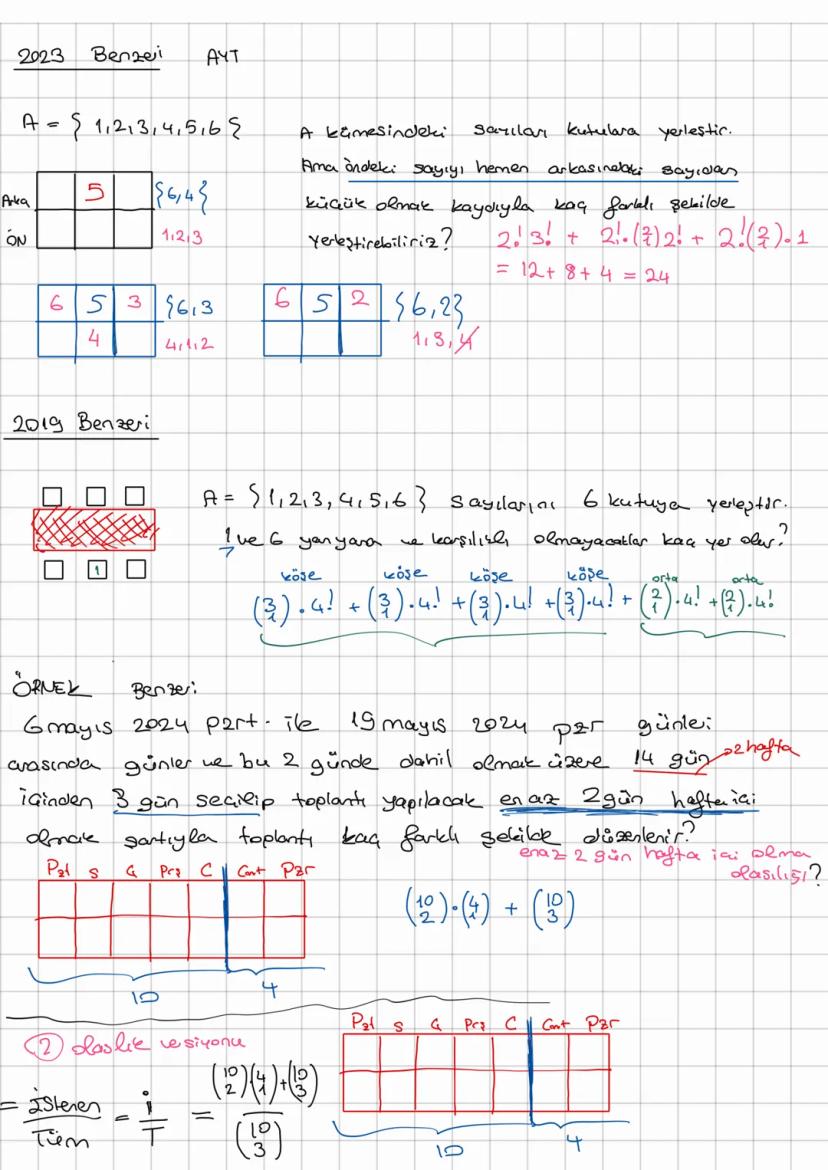 2023 Benzeri AYT
A = { 1,2,3,4,5,6 {
A kümesindeki sayıları kutulara yerleştir.
Ama öndeki sayıyı hemen arkasındaki sayıdan
küçük olmak kaydıyla kaç farklı şekilde
yerleştirebiliriz? 2! 3! + 2!.(2/1) 2! + 2!(2/1).1
= 12 + 8 + 4 = 24
Arka 5 {6,4{
ÖN 1,2,3
6 5 3 {6,3
4 4,1,2
6 5 2 {6,2}
1,3,4
2019 Benzeri
1
A = {1,2,3,4,5,6} sayılarını 6 kutuya yerleştir.
1 ve 6 yanyana ve karşılıklı olmayacaklar kaç yer olur?
köşe köşe köşe köşe orta orta
(3/1).4! + (3/1).4! + (3/1).4! + (3/1).4! + (2/1).4! + (2/1).4!
ÖRNEK Benzeri
6 mayıs 2024 pzrt. ile 19 mayıs 2024 pzr günleri
arasında günler ve bu 2 günde dahil olmak üzere 14 gün → 2 hafta
içinden 3 gün seçilip toplantı yapılacak en az 2 gün hafta içi
olmak şartıyla toplantı kaç farklı şekilde düzenlenir?
en az 2 gün hafta içi olma
olasılığı?
Pzt S Ç Prş C Cmt Pzr
(10/2).(4/1) + (10/3)
10 4
2 olasılık versiyonu
Pzt S Ç Prş C Cmt Pzr
= İstenen/Tüm = i/T = (10/2)(4/1)+(10/3)/(10/3)
10 4